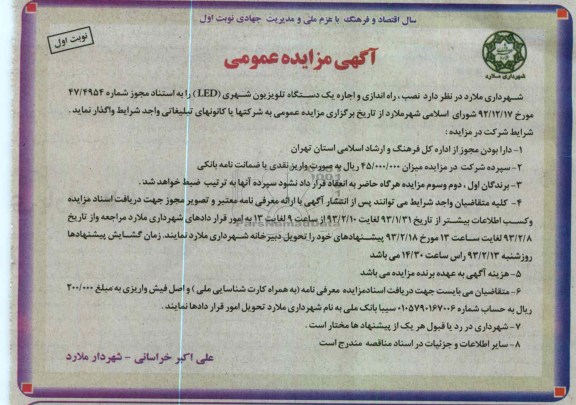 سال اقتصاد و فرهنگ با عزم ملی و مدیریت جهادی نوبت اول
نوبت اول
آگهی مزایده عمومی
شهرداری ملارد
شهرداری ملارد در نظر دارد نصب، راه اندازی و اجاره یک دستگاه تلویزیون شهری (LED) را به استناد مجوز شماره ۴۷/۴۹۵۴
مورخ ۹۲/۱۲/۱۷ شورای اسلامی شهر ملارد از تاریخ برگزاری مزایده عمومی به شرکتها یا کانونهای تبلیغاتی واجد شرایط واگذار نماید .
شرایط شرکت در مزایده :
۱- دارا بودن مجوز از اداره کل فرهنگ و ارشاد اسلامی استان تهران
۲- سپرده شرکت در مزایده میزان ۴۵/۰۰۰/۰۰۰ ریال به صورت واریز نقدی یا ضمانت نامه بانکی
۳- برندگان اول ، دوم وسوم مزایده هرگاه حاضر به انعقاد قرار داد نشود سپرده آنها به ترتیب ضبط خواهد شد.
۴- کلیه متقاضیان واجد شرایط می توانند پس از انتشار آگهی با ارائه معرفی نامه معتبر و تصویر مجوز جهت دریافت اسناد مزایده
وکسب اطلاعات بیشتر از تاریخ ۹۳/۱/۳۱ لغایت ۹۳/۲/۱۰ از ساعت ۹ لغایت ۱۳ به امور قرار دادهای شهرداری ملارد مراجعه واز تاریخ
۹۳/۲/۸ لغایت ساعت ۱۳ مورخ ۹۳/۲/۱۸ پیشنهادهای خود را تحویل دبیرخانه شهرداری ملارد نمایند. زمان گشایش پیشنهادها
روزشنبه ۹۳/۲/۱۳ راس ساعت ۱۴/۳۰ می باشد
۵- هزینه آگهی به عهده برنده مزایده می باشد
۶- متقاضیان می بایست جهت دریافت اسنادمزایده معرفی نامه (به همراه کارت شناسایی ملی ) و اصل فیش واریزی به مبلغ ۲۰۰/۰۰۰
ریال به حساب شماره ۰۱۰۵۷۹۰۱۶۷۰۰۶ سیبا بانک ملی به نام شهرداری ملارد تحویل امور قرار دادها نمایند .
۷- شهرداری در رد یا قبول هر یک از پیشنهاد ها مختار است .
۸- سایر اطلاعات و جزئیات در اسناد مناقصه مندرج است
علی اکبر خراسانی - شهردار ملارد